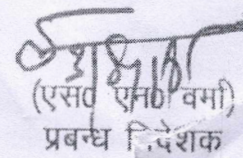 (एस0 एन0 वर्मा)
प्रबन्ध निदेशक